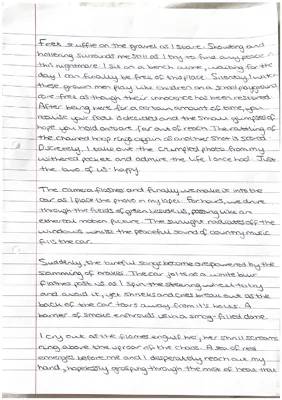 Feet shuffle on the gravel as I stare. Shouting and
hollering surround me still as I try to find any peace in
this nightmare. I sit on a bench alone, waiting for the
day I can finally be free of this place. Silently I watch
these grown men play like children on a small playground
are free as though their innocence has been restored.
After being here for a certain amount of time, you
realise your fate is decided and the small glimpses of
hope you hold onto are far out of reach. The rattling of
the chained hoop rings again as another shot is scored
Discretely, I take out the crumpled photo from my
withered pocket and admire the life I once had. Just
the two of us - happy.
The camera flashes and finally we make it into the
car as I place the photo in my lapel. For hours, we drove
through the fields of green beside us, passing like an
external motion picture. The sunlight radiates off the
windows whilst the peaceful sound of country music
fills the car.
Suddenly, the tuneful songs become overpowered by the
slamming of brakes. The car jolts as a white blur
flashes past us as I spin the steering wheel to try
and avoid it, yet shrieks and cries break out as the
back of the car tears away from it's body. A
banner of smoke enshrouds us in a smog-filled dome.
I cry out as the flames engulf her, her shrill screams
ring above the uproar of the chaos. A sea of red
emerges before me and I desperately reach out my
hand, hopelessly grasping through the mist of heat that